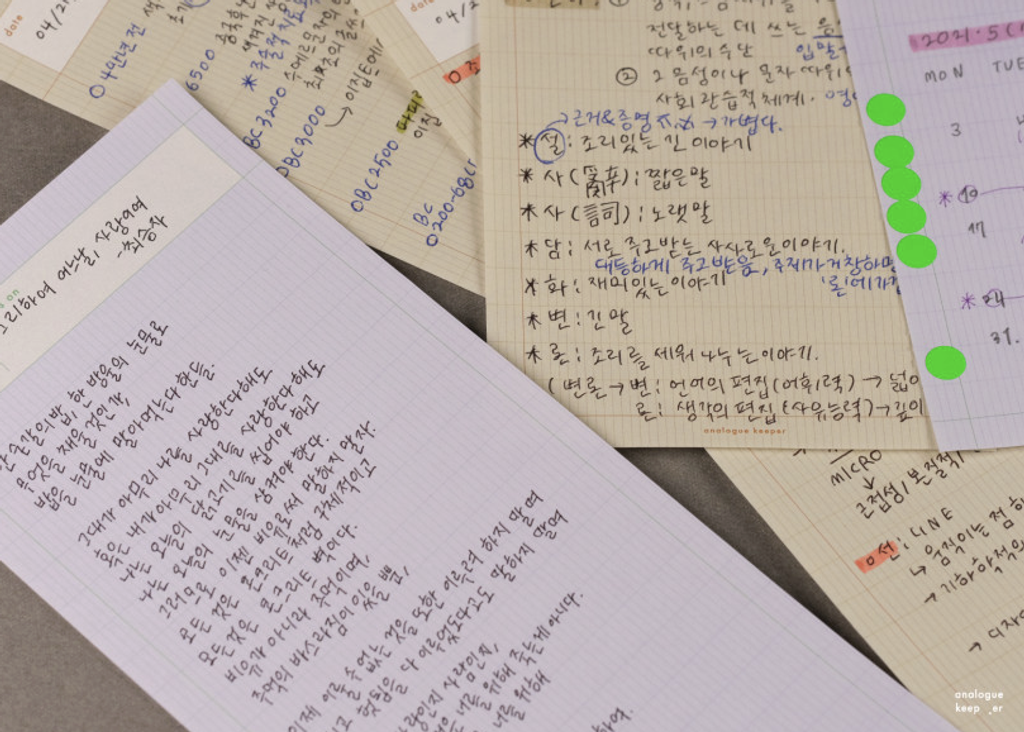 date
04/2
○4만년전
6500
BC 3200
○BC 3000
→ 이집트에서
○BC 2500
이질
BC
○200-68
date
04/2
전달하는 데 쓰는 음
따위의 수단
입말
② 2 음성이나 문자 따위
사회 관습적 체계.
→근거&증명 →가볍다.
* 설: 조리있는 긴 이야기
* 사( ): 짧은말
* 사(詞): 노랫말
* 담: 서로 주고받는 사사로운이야기.
대등하게 주고받음, 주제가거창하면
* 화: 재미있는이야기
* 변: 긴말
* 론: 조리를 세워 나누는이야기.
(변론 → 변: 언어의 편집(어휘력) → 넓이
론: 생각의 편집(사유능력)→깊이
analogue keeper
2021. 5
MON TUE
3
10
17
24
31.
그리하여 어느날, 사랑이여
-최승자
한 숟갈의 밥, 한 방울의 눈물로
무엇을 채울 것인가,
밥을 눈물에 말아먹는다한들.
그대가 아무리 나를 사랑한다해도
혹은 내가 아무리 그대를 사랑한다해도
나는 오늘의 닭고기를 씹어야 하고
나는 오늘의 눈물을 삼켜야한다.
그러므로 이제 비유로써 말하지 말자.
모든 것은 콘크리트처럼 구체적이고
모든 것은 콘크리트 벽이다.
비유가 아니라 주먹이며,
주먹의 바스라짐이 있을 뿐,
이제 이룰 수 없는 것을 또한 이루려 하지 말며
헛됨을 다 이루었다고도 말하지 말며
사랑인지,
너를 위해 죽는게 아니다.
너를 위해
MICRO
↓
근접성, 본질적
○선: LINE
↳ 움직이는 점
→ 기하학적
→ 디자
analogue
keep er